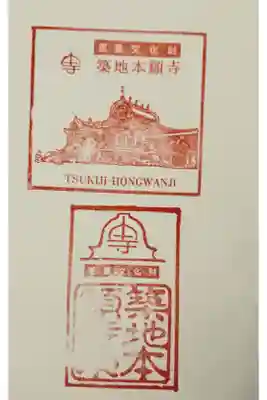 重要文化財
寺 築地本願寺
TSUKIJI-HONGWANJI
寺
重要文化財
築地本
願寺